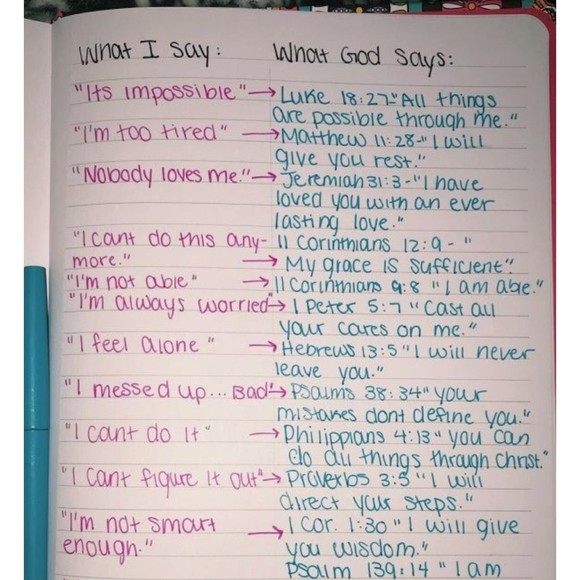 What I say: What God says:
"Its impossible" → Luke 18:27 "All things
are possible through me."
"I'm too tired" → Matthew 11:28-"I will
give you rest."
"Nobody loves me." → Jeremiah 31:3-"I have
loved you with an ever
lasting love."
"I cant do this any- 11 Corinthians 12:9 - "
more." → My grace is sufficient".
"I'm not able" → 11 Corinthians 9:8 "I am able."
"I'm always worried" → 1 Peter 5:7 "Cast all
your cares on me."
"I feel alone" → Hebrews 13:5 "I will never
leave you."
"I messed up... Bad" → Psalms 38:34 "your
mistakes dont define you."
"I cant do it" → Philippians 4:13 "you can
do all things through Christ."
"I cant figure it out" → Proverbs 3:5 "I will
direct your steps."
"I'm not smart → 1 Cor. 1:30 "I will give
enough." you wisdom."
Psalm 139:14 "I am